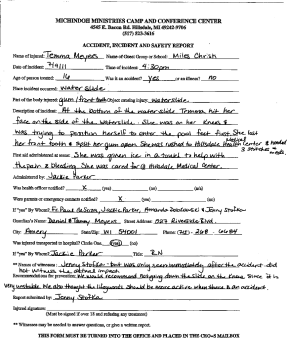 MICHINDOH MINISTRIES CAMP AND CONFERENCE CENTER
4545 E. Bacon Rd. Hillsdale, MI 49242-9706
(517) 523-3616
ACCIDENT, INCIDENT AND SAFETY REPORT
Name of Injured: Temma Meyers Name of Guest Group or School: Miles Christi
Date of Incident: 7/9/11 Time of Incident: 4:30pm
Age of person treated: 16 Was it an accident? yes or an illness? no
Place incident occurred: waterslide
Part of the body injured: gum/front tooth Object causing injury: waterslide.
Description of Incident: At the bottom of the waterslide Temma hit her
face on the side of the waterslide. She was on her knees &
was trying to position herself to enter the pool feet first. She lost
her front tooth & split her gum open. She was rushed to Hillsdale Health Center & needed
Medical
3 stitches
First aid administered at scene: She was given ice in a towel to help with
the pain & bleeding. She was cared for @ Hillsdale Medical Center.
Administered by: Jackie Parker
Was health officer notified? X (yes) (no)
Were parents or emergency contacts notified? X (yes) (no)
If "yes" By Whom: Jackie Parker, Amanda & Jenny Stofka
Guardian's Name: Daniel & Tammy Meyers Street Address: 227 Riverside Blvd.
City: Amery State/Zip: WI 54001 Phone: (715) - 268 - 6684
Was injured transported to hospital? Circle One. (yes) (no)
If "yes" By Whom: Jackie Parker Title: R.N.
** Names of witness: Jenny Stofka - but was only seen immediately after the accident did
not witness the actual impact.
Recommendations for prevention: We would recommend not going down the slide on the knees, since it is
very unstable. We also thought the lifeguards should be more active when there is an accident.
Report submitted by: Jenny Stofka
Injured signature:
(Must be signed if over 18 and refusing any treatment)
** Witness may be needed to answer questions, or give a written report.
THIS FORM MUST BE TURNED INTO THE OFFICE AND PLACED IN THE CRO-S MAILBOX